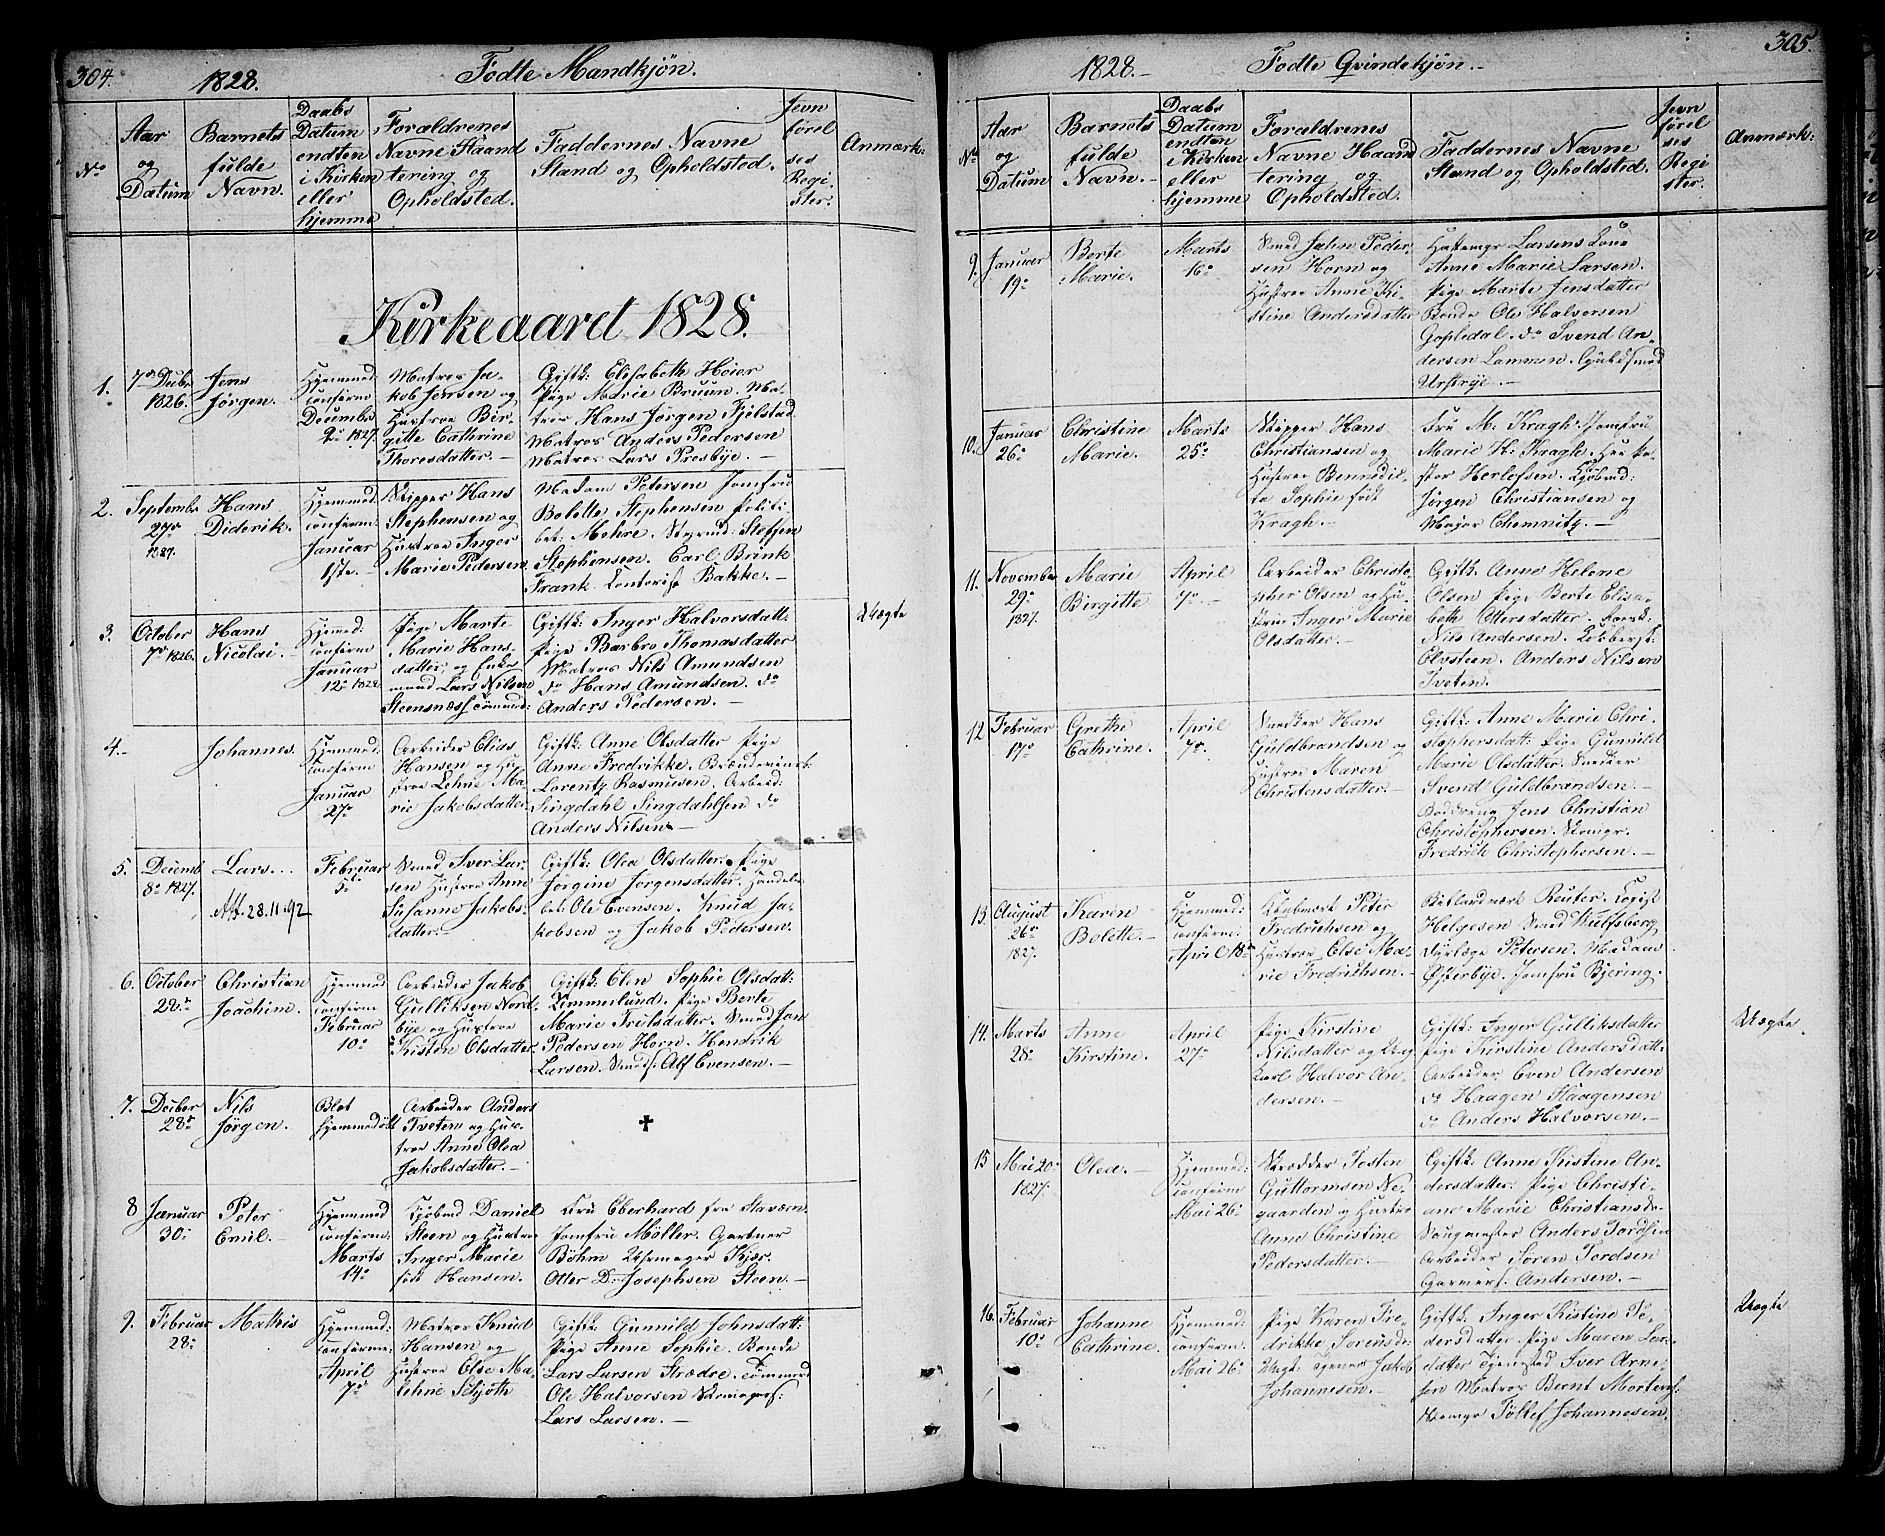 304.
1828.
Födte Mandkjön.
No
Aar og Datum
Barnets fulde Navn.
Daabs Datum endten i Kirken eller hjemme
Foræeldrenes Navne Staand tering og Opholdsted.
Faddernes Navne Stand og Opholdsted.
Jevn förel ses Regi ster.
Anmærk:
Kirkeaaret 1828.
1.
7de Decbr 1826.
Jens Jörgen.
Hjemmed: confirm Decembr 2. 1827.
Matros Ja-
kob Jensen og
Hustroe Bir-
gitte Cathrine
Thoresdatter.-
Giftk: Elisabeth Höier
Pige Marie Bruun. Ma-
tros Hans Jörgen Fjelstad
Matros Anders Pedersen
Matros Lars Presbye.-
2.
Septembr 27de 1827.
Hans Diderik.
Hjemmed: confirm Januar 1ste.-
Skipper Hans
Stephensen og
Hustroe Inger
Marie Pedersen
Madam Petersen Jomfru
Bolette Stephensen Politi-
bet: Mehre. Styrmd: Steffen
Stephensen. Carl Brink
Frank Contorist Bakke.-
3.
October 7de 1826.
Hans Nicolai.
Hjemmed: confirm Januar 12te 1828
Pige Marte
Marie Hans-
datter og Enke
mand Lars Nilsen
Steensnæss
Giftk: Inger Halvorsdatt:
Pige Barbro Thomasdatter
Matros Nils Amundsen
do Hans Amundsen. do
Anders Pedersen.-
Uægte
4.-
Johannes.
Hjemmed: confirm Januar 27de
Arbeider Elias
Hansen og Hu-
stroe Lehne Ma-
rie Jakobsdatter
Giftk: Anne Olsdatter Pige
Anne Fredrikke.
Lorentz Rasmusen. Arbeid:
Singdahl Singdahlsen do
Anders Nilsen.-
5.
Decemb 8de 1827.
Lars...
Att 28.11.92
Februar 5te
Smed Iver Lar-
sen Hustroe Anne
Susanne Jakobs-
datter.-
Giftk: Olea Olsdatter. Pige
Jörgine Jörgensdatter. Handels
bet: Ole Evensen. Knud Ja-
kobsen og Jakob Pedersen.
6.
October 28de
Christian Joachim.
Hjemmed confirm Februar 10de
Arbeider Jakob
Gulliksen Nord-
bye og Hustroe
Kisten Olsdatter
Giftk: Elen Sophie Olsdatt:
Kimmerlund. Pige Berte
Marie Trolsdatter. Smed Jan
Pedersen Horn. Hendrik
Larsen. Smeds: Alf Evensen.-
7.
Decber 28de
Nils Jörgen.
Blot hjemmedöbt
Arbeider Anders
Tveten og Hus-
troe Anne Olea
Jakobsdatter.-
✝
8
Januar 30te
Peter Emil.-
Hjemmed confirm: Marts 14de
Kjöbmd Daniel
Steen og Hustroe
Inger Marie
föd Hansen.
Fru Eberhard fra Stavern
Jomfru Möller. Gartner
Böhm Uhrmager Kjær
Otter D: Josephsen Steen.-
9.
Februar 28de
Mathis
Hjemmed: confirm April 7de
Matros Knud
Hansen og
Hustroe Else Ma-
lehne Schjöth
Giftk: Gunnild Johnsdatt:
Pige Anne Sophie. Bonde
Lars Larsen Strædre.
Ole Halvorsen
Lars Larsen.-
305.
1828.-
Födte Qvindekjön.-
No
Aar og Datum
Barnets fulde Navn.-
Daabs Datum endten i Kirken eller hjemme
Foræeldrenes Navne Haand tering og Opholdsted.
Faddernes Navne Stand og Opholdsted.
Jevn förel ses Regi ster.
Anmærk:
9.
Januar 19de
Berte Marie.
Marts 16de
Smed Jahn Peder-
sen Horn og
Hustroe Anne Ki-
stine Andersdatter
Larsens Kone
Anne Marie Larsen.
Pige Marte Jensdatter
Bonde Ole Halvorsen
Gopledal. do Svend An-
dersen Lammen.
10.
Januar 26de
Christine Marie.
Marts 25de
Skipper Hans
Christiansen og
Hustroe Benedic-
te Sophie födt
Kragh.-
Fru M. Kragh. Jomfru
Marie H. Kragh. Her Pa-
stor Herlofsen. Kjöbmd:
Jörgen Christiansen og
Major Chemnitz.-
11.
November 29de 1827.
Marie Birgitte
April 7de.-
Arbeider Christo-
pher Olsen og Hu-
stroe Inger Marie
Olsdatter.-
Giftk: Anne Helene
Olsen Pige Berte Elisa-
beth Ottersdatter.
Nils Andersen. Kobberst:
Elvsteen. Anders Nilsen
Tveten.
12
Februar 17de
Grethe Cathrine.
April 7de.
Snedker Hans
Guldbrandsen og
Hustroe Maren
Christensdatter.-
Giftk: Anne Marie Chri-
stophersdatt: Pige Gunnild
Marie Olsdatter. Snedker
Svend Guldbrandsen.-
Jens Christian
Christophersen. Skomgr.
Fredrich Christophersen.-
13.
August 26de 1827.
Karen Bolette.-
Hjemmed: confirm: April 18de
Peter
Fredrichsen og
Hustroe Else Ma-
rie Fredrichsen.-
Reuter. Logist
Helgesen Smed Wulfsberg
Dyrlæge Petersen. Madam
Österbye. Jomfru Bjering.
14.
Marts 28de
Anne Kirstine.
April 27de
Pige Kirstine
Nilsdatter og Ung
karl Halvor An-
dersen.
Giftk: Inger Gulliksdatter
Pige Kirstine Andersdatt:
Arbeider Even Andersen
do Haagen Haagensen
do Anders Halvorsen.-
Uægte.
15
Mai 20de 1827.
Olea.-
Hjemmed: confirm Mai 26de
Skrædder Tosten
Guttormsen Ne-
gaarden og Hustroe
Anne Christine
Pedersdatter.-
Giftk: Anne Kistine An-
dersdatter. Pige Christi-
ane Marie Christiansdr
Saugmester Anders Tordsen
Arbeider Sören Tordsen
Andersen.-
16.
Februar 10de
Johanne Cathrine.
Hjemmed: confirm: Mai 26de
Pige Karen Fre-
drikke Sörensdr
Ungk: Tjener Jakob
Johannesen.
Giftk: Inger Kistine Pe-
dersdatter. Pige Maren Lar-
sdatter Tjenested Iver Arne-
sen Matros Bernt Mortens:
Skomgr Töllef Johannesen.
Uægte